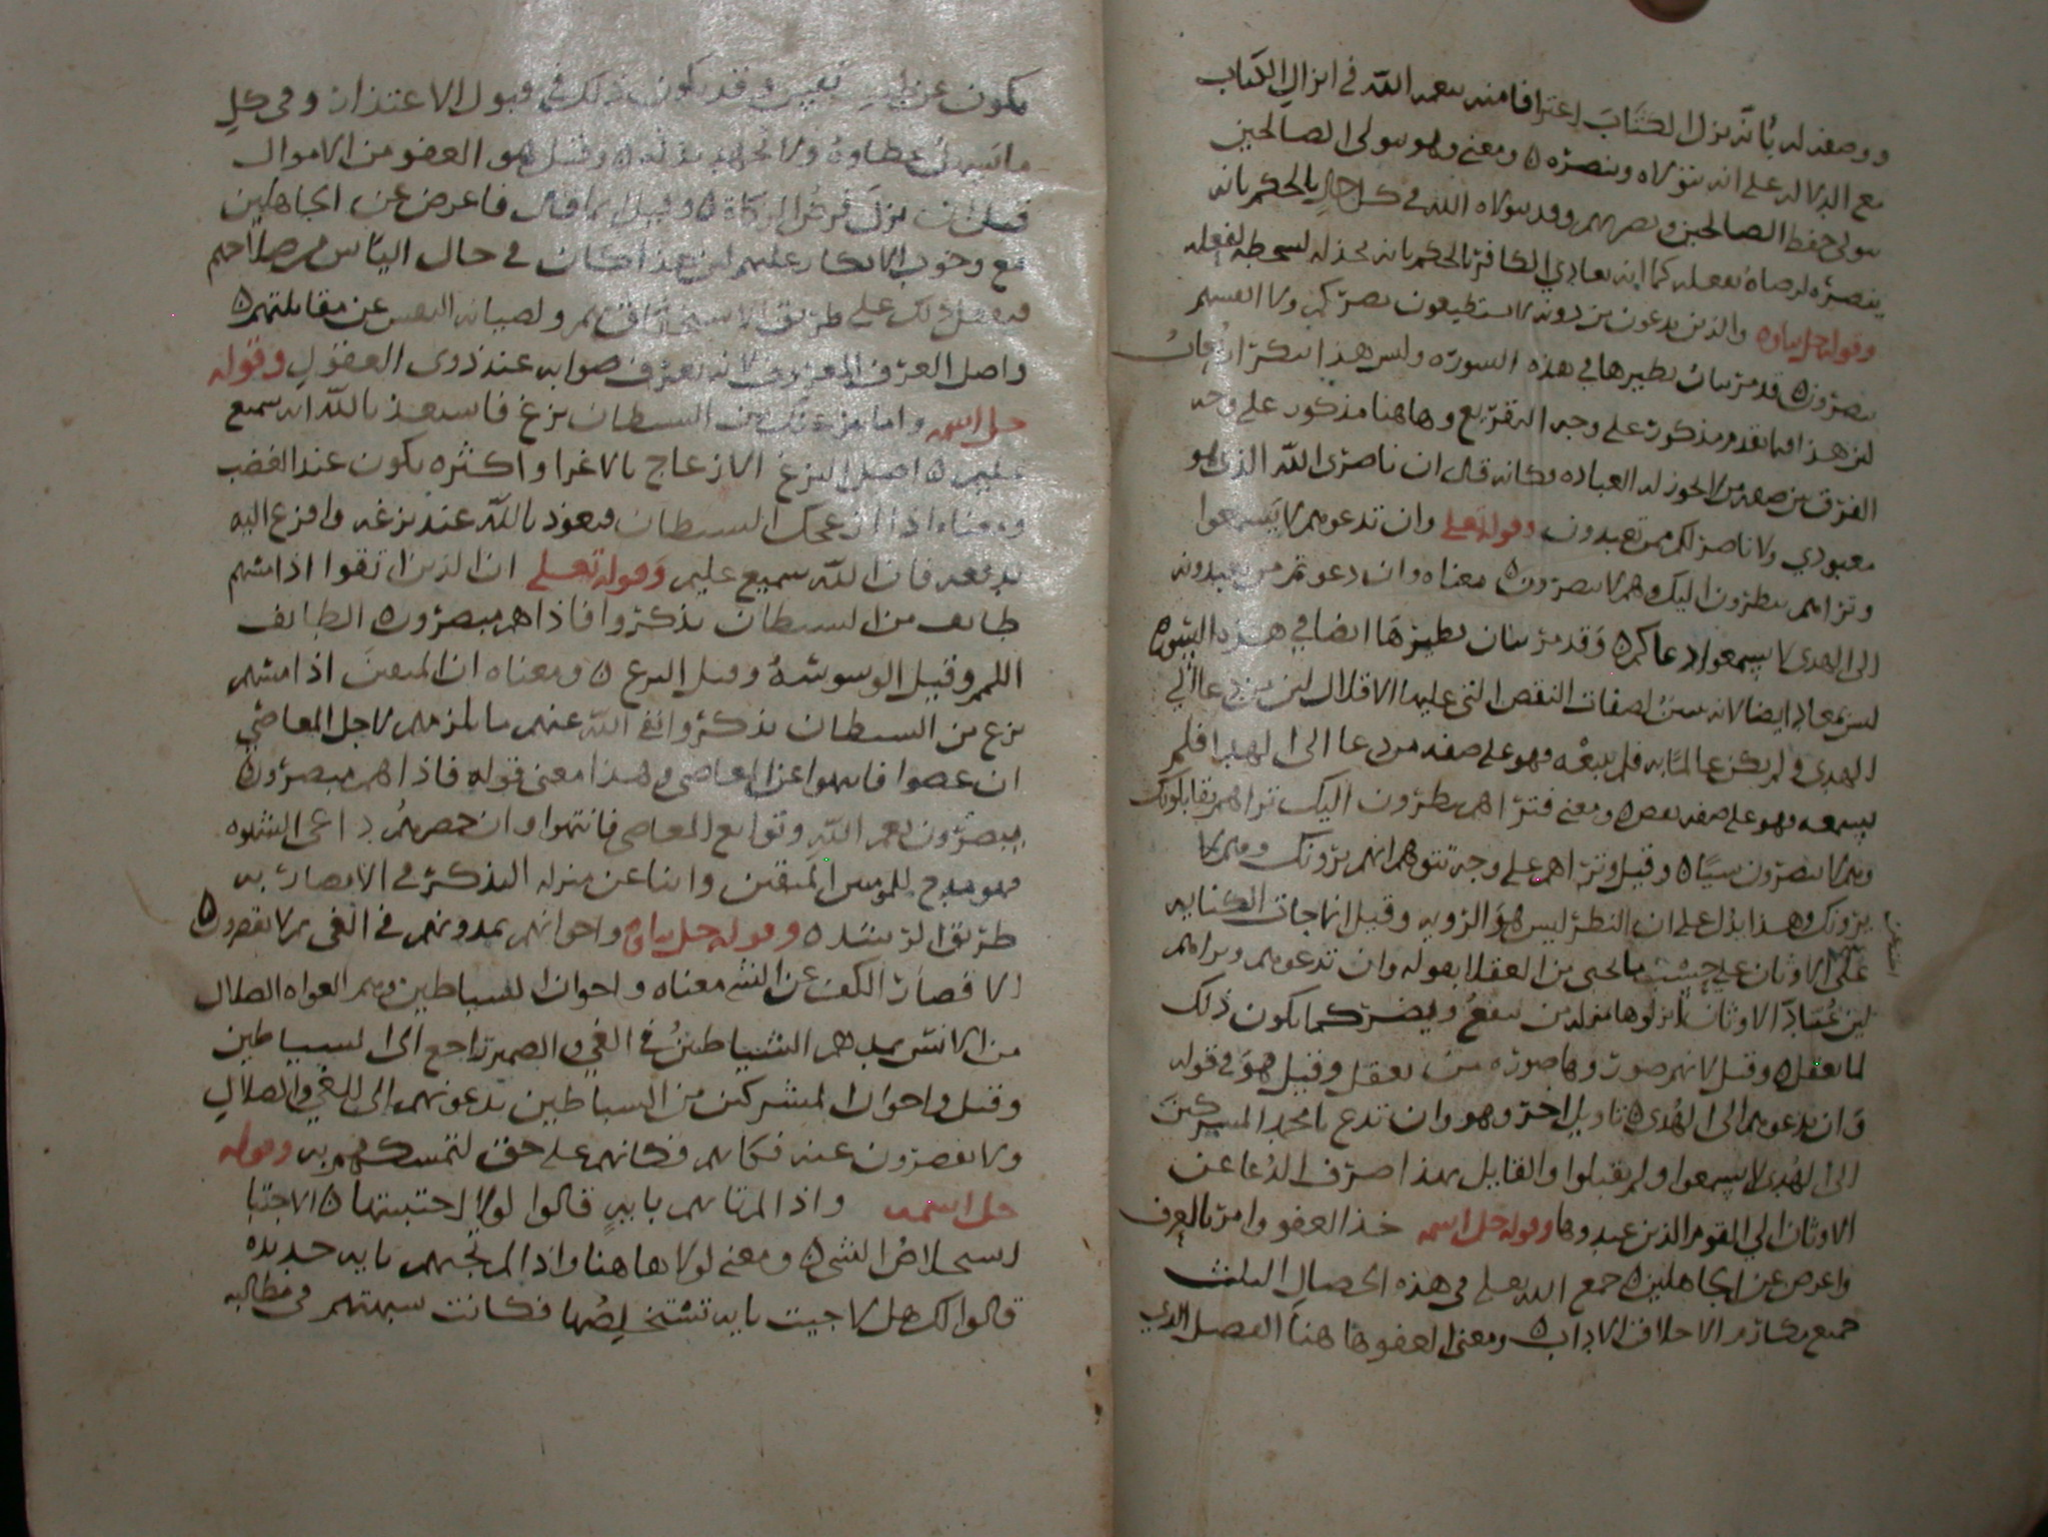 ووصفه له بأنه نزل الكتاب اعترافا منه بنعمه الله في انزال الكتاب
مع الدلاله على انه يتولاه وينصره ومعنى وهو يتولى الصالحين
يتولى حفظ الصالحين ونصرهم وقد يتولاه الله في كل حال بالحكم بانه
ينصره لرضاه بفعله كما انه يعادي الكافر بالحكم بانه يخذله لسخطه لفعله
وقوله جل ثناوه والذين يدعون من دونه لا يستطيعون نصركم ولا انفسهم
ينصرون قد مر بيان نظيرها في هذه السوره وليس هذا بتكرار
لان هذا فيما تقدم مذكور على وجه التقريع وهاهنا مذكور على وجه
الفرق بين صفه من يجوز له العباده وكانه قال ان ناصري الله الذي هو
معبودي ولا ناصر لكم ممن تعبدون وقوله تعلى وان تدعوهم لا يسمعوا
وتراهم ينظرون اليك وهم لا يبصرون معناه وان دعوتم من تعبدونه
الى الهدى لا يسمعوا دعاكم وقد مر بيان نظيرها ايضا في هذه السوره
ليس بمعاد ايضا لانه بين لصفات النقص التي عليها لان من دعا الى
الهدى ولم يكن عالما به فلم يتبعه فهو على صفه من دعا الى الهدى فلم
يسمعه فهو على صفه نقص ومعنى فتراهم ينظرون اليك تراهم يقابلونك
وهم لا يبصرون شيا وقيل وتراهم على وجه تتوهم انهم يرونك وهم لا
يرونك وهذا يدل على ان النظر ليس هو الرويه وقيل انما جات الكنايه
على الاوثان على من العقلا بقوله وان تدعوهم وتراهم
لان عباد الاوثان انزلوها منزله من ينفع ويضر كما يكون ذلك
لما يعقل وقيل لانهم صوروها صوره من يعقل وقيل هو في قوله
وان تدعوهم الى الهدى تاويل اخر وهو وان تدع يا محمد المشركين
الى الهدى لا يسمعوا ولم يقبلوا والقايل بهذا صرف الدعا عن
الاوثان الى القوم الذين عبدوها وقوله جل اسمه خذ العفو وامر بالعرف
واعرض عن الجاهلين جمع الله تعلى في هذه الخصال الثلث
جميع مكارم الاخلاق الاداب ومعنى العفو هاهنا الفضل الذي
يكون عن نفس وقد يكون ذلك في قبول الاعتذار وفي كل
ما تسهل عطاوه ولا بذله وقيل هو العفو من الاموال
قبل ان ينزل فرض الزكاه وقيل لما قال فاعرض عن الجاهلين
مع وجوب الانكار عليهم لان هذا كان في حال الياس من صلاحهم
فيفعل ذلك على طريق الاستخفاف بهم ولصيانه النفس عن مقابلتهم
واصل العرف المعروف لانه يعرف صوابه عند ذوى العقول وقوله
جل اسمه واما ينزغنك من الشيطان نزغ فاستعذ بالله انه سميع
عليم اصل النزغ الازعاج بالاغرا واكثره يكون عند الغضب
ومعناه اذا ازعجك الشيطان فتعوذ بالله عند نزغه وافزع اليه
بدفعه فان الله سميع عليم وقوله تعلى ان الذين اتقوا اذا مسهم
طايف من الشيطان تذكروا فاذا هم مبصرون الطايف
اللمم وقيل الوسوسه وقيل النزغ ومعناه ان المتقين اذا مسهم
نزغ من الشيطان تذكروا الله عنهم ما يلزمهم لاجل المعاصي
ان عصوا فانتهوا عن المعاصي وهذا معنى قوله فاذا هم مبصرون
يبصرون نعم الله وتوابع المعاصي فانتهوا وان داعي الشهوه
فهو مدح للمومنين المتقين وابنا عن منزله التذكر في الابصار به
طريق الرشد وقوله جل ثناوه واخوانهم يمدونهم في الغي ثم لا يقصرون
الاقصار الكف عن الشي معناه واخوان الشياطين وهم الغواه الضلال
من الانس يمدهم الشياطين في الغي والضمير راجع الى الشياطين
وقيل واخوان المشركين من الشياطين يدعونهم الى الغي والضلال
ولا يقصرون عنه فكانهم على حق لتمسكهم به وقوله
جل اسمه واذا لم تاتهم بايه قالوا لولا اجتبيتها الاجتبا
استخلاص الشي ومعنى لولا هاهنا واذا لم تجيهم بايه جديده
قالوا لك هلا جيت بايه تستخلصها فكانت سبهتهم في مطالبه